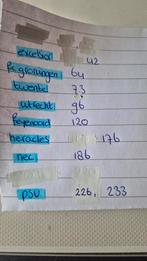 excelsior 42
fc groningen 64
twente 73
utrecht 96
feyenoord 120
heracles 176
nec 186
psv 226, 233